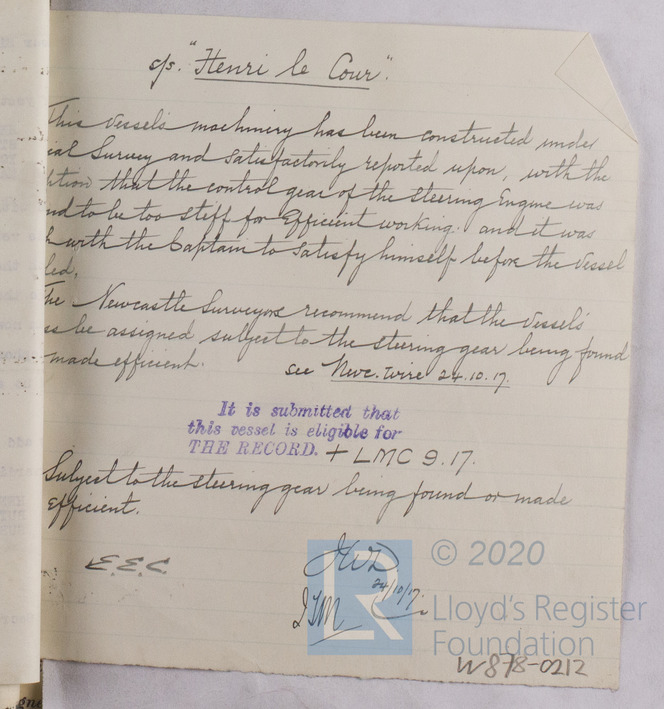 s/s. "Henri le Cour".
This vessel's machinery has been constructed under
ial Survey and satisfactorily reported upon, with the
ption that the control gear of the steering Engine was
nd to be too stiff for efficient working. and it was
with the Captain to satisfy himself before the vessel
led.
The Newcastle Surveyors recommend that the vessel's
ss be assigned subject to the steering gear being found
made efficient. see Nwc. Wire 24.10.17.
It is submitted that
this vessel is eligible for
THE RECORD. + LMC 9.17.
Subject to the steering gear being found or made
efficient.
24/10/17.
© 2020
LR
Lloyd's Register
Foundation
W878-0212